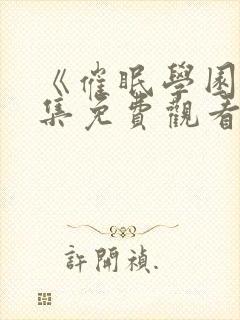 《催眠學園
集免費觀看
許開禎.